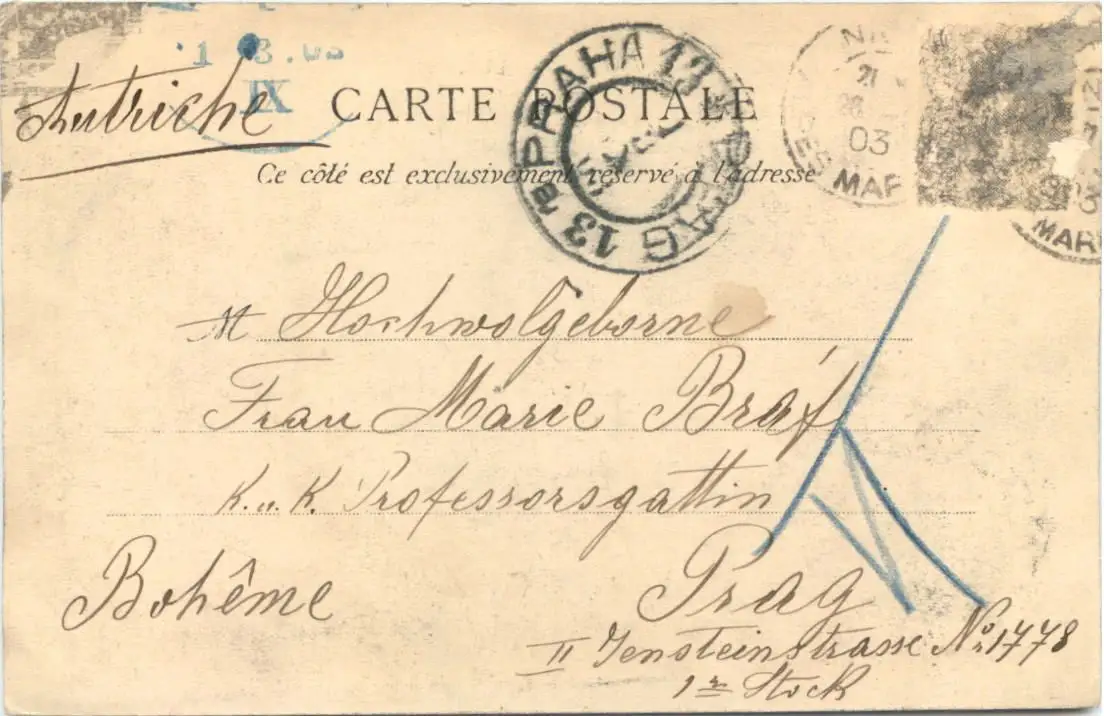 1 3.03
IX
Autriche
CARTE POSTALE
Ce côté est exclusivement réservé à l'adresse
13 PRAHA 13 PRAG
NI
21
28
03
MAR
3
MAR
M Hochwolgeborne
Frau Marie Bráf
K. u. K. Professorsgattin
Bohême
Prag
II Jensteinstrasse No 1778
1r Stock